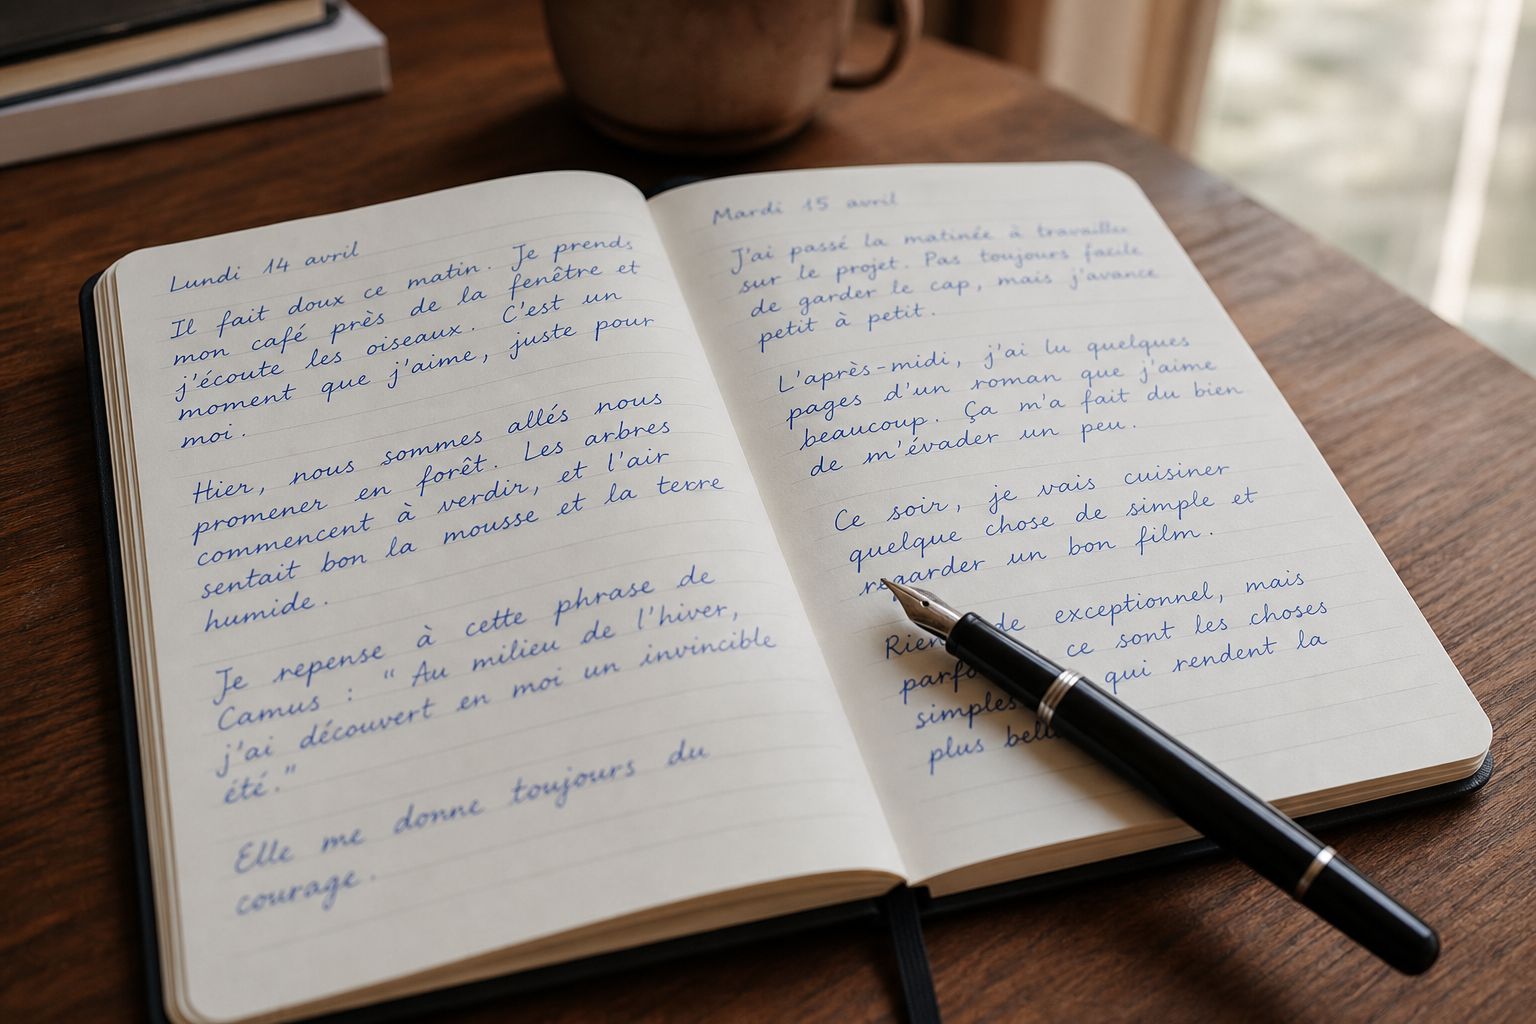 Lundi 14 avril
Il fait doux ce matin. Je prends
mon café près de la fenêtre et
j'écoute les oiseaux. C'est un
moment que j'aime, juste pour
moi.
Hier, nous sommes allés nous
promener en forêt. Les arbres
commencent à verdir, et l'air
sentait bon la mousse et la terre
humide.
Je repense à cette phrase de
Camus : "Au milieu de l'hiver,
j'ai découvert en moi un invincible
été."
Elle me donne toujours du
courage.
Mardi 15 avril
J'ai passé la matinée à travailler
sur le projet. Pas toujours facile
de garder le cap, mais j'avance
petit à petit.
L'après-midi, j'ai lu quelques
pages d'un roman que j'aime
beaucoup. Ça m'a fait du bien
de m'évader un peu.
Ce soir, je vais cuisiner
quelque chose de simple et
regarder un bon film.
Rien de exceptionnel, mais
ce sont les choses
simples qui rendent la
plus